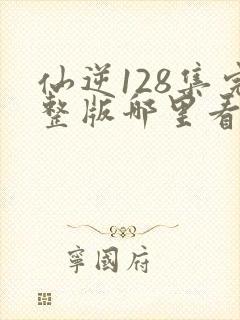 仙逆128集完
整版哪里看
寧國府